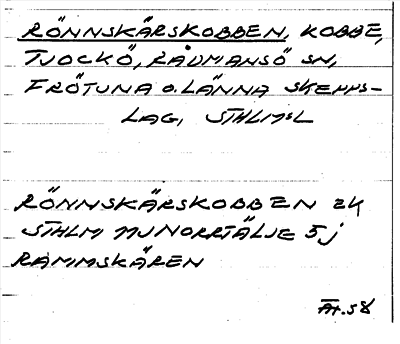 RÖNNSKÄRSKOBBEN, KOBBE,
TJOCKÖ, RÅDMANSÖ SN,
FRÖTUNA O. LÄNNA SKEPPS-
LAG, STHLMSL
RÖNNSKÄRSKOBBEN EK
STHLM NJ NORRTÄLJE 5j
RAMMSKÄREN